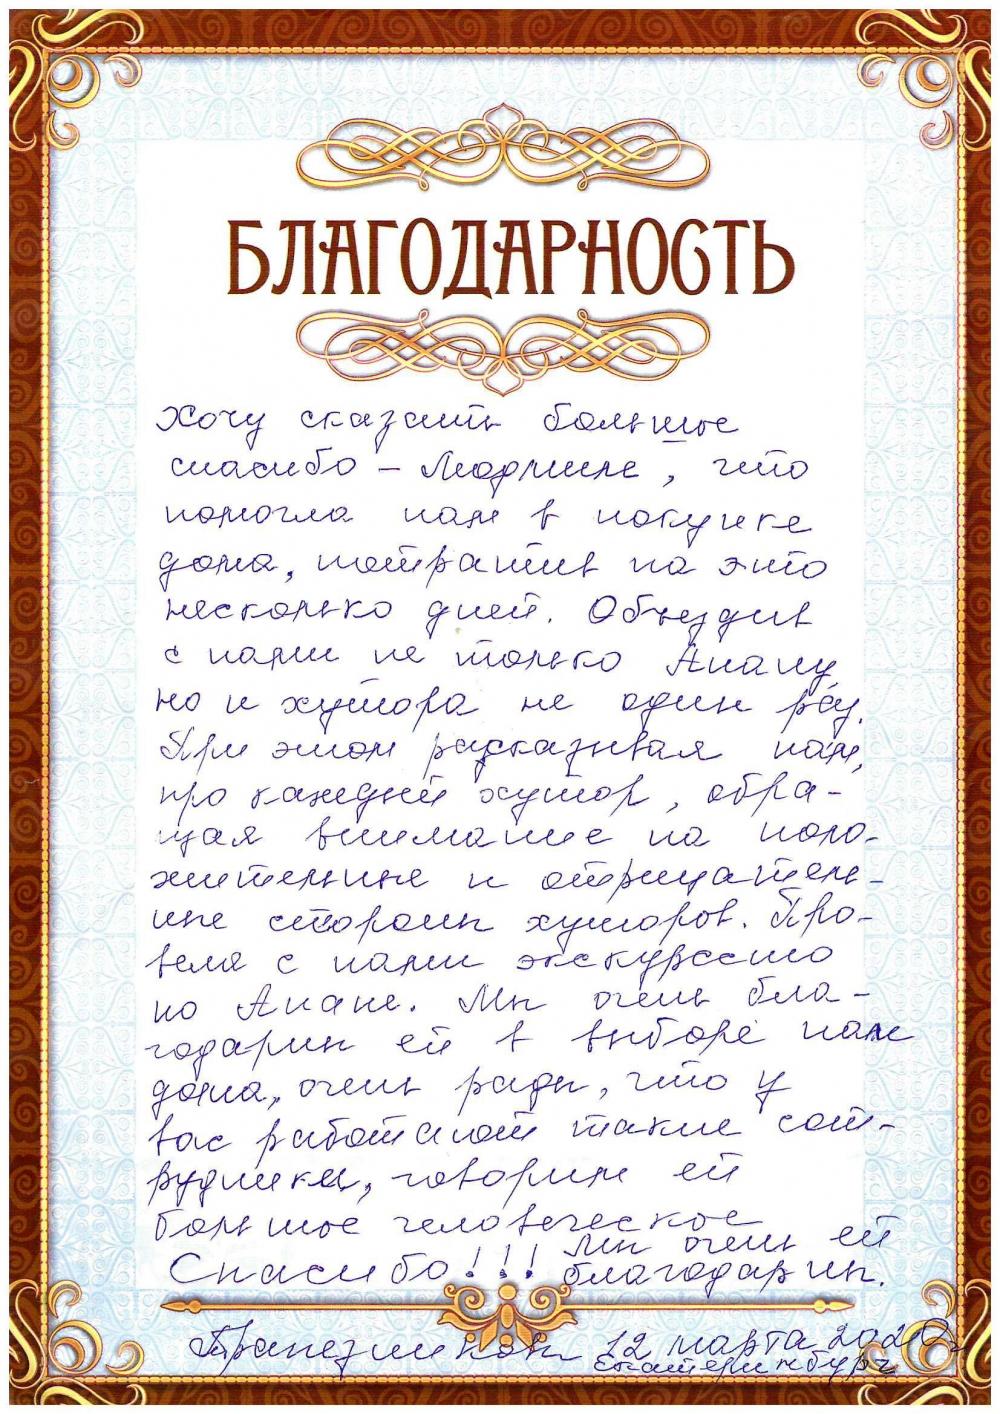 БЛАГОДАРНОСТЬ
Хочу сказать большое
спасибо – Людмиле, что
помогла нам в покупке
дома, потратив на это
несколько дней. Объездив
с нами не только Анапу
но и хутора не один раз.
При этом рассказывая нам,
про каждый хутор, обра-
щая внимание на поло-
жительные и отрицатель-
ные стороны хуторов. Про-
вела с нами экскурсию
по Анапе. Мы очень бла-
годарны ей в выборе нам
дома, очень рады, что у
вас работают такие сот-
рудники, говорим ей
большое человеческое
Спасибо!!! Мы очень ей
благодарны.
12 марта 2020 г
Екатеринбург